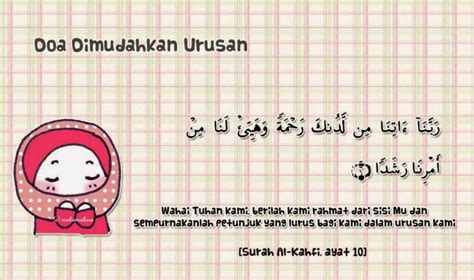 Doa Dimudahkan Urusan
رَبَّنَآ ءَاتِنَا مِن لَّدُنكَ رَحْمَةً وَهَيِّئْ لَنَا مِنْ
أَمْرِنَا رَشَدًا ۝١٠
Wahai Tuhan kami, berilah kami rahmat dari sisi Mu dan
sempurnakanlah petunjuk yang lurus bagi kami dalam urusan kami
[Surah Al-Kahfi, ayat 10]